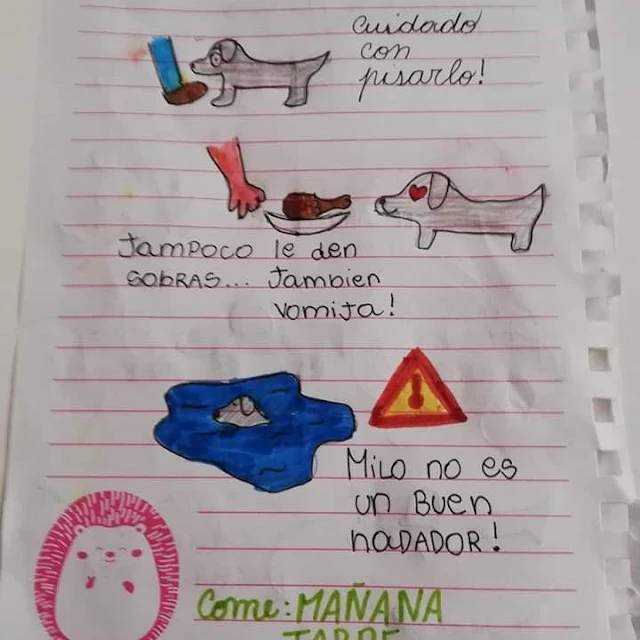 Cuidado
con
pisarlo!
TAMPOCO le den
SOBRAS... Tambien
vomita!
MILO no es
un BUEN
naDADOR!
Come: MAÑANA
TARDE